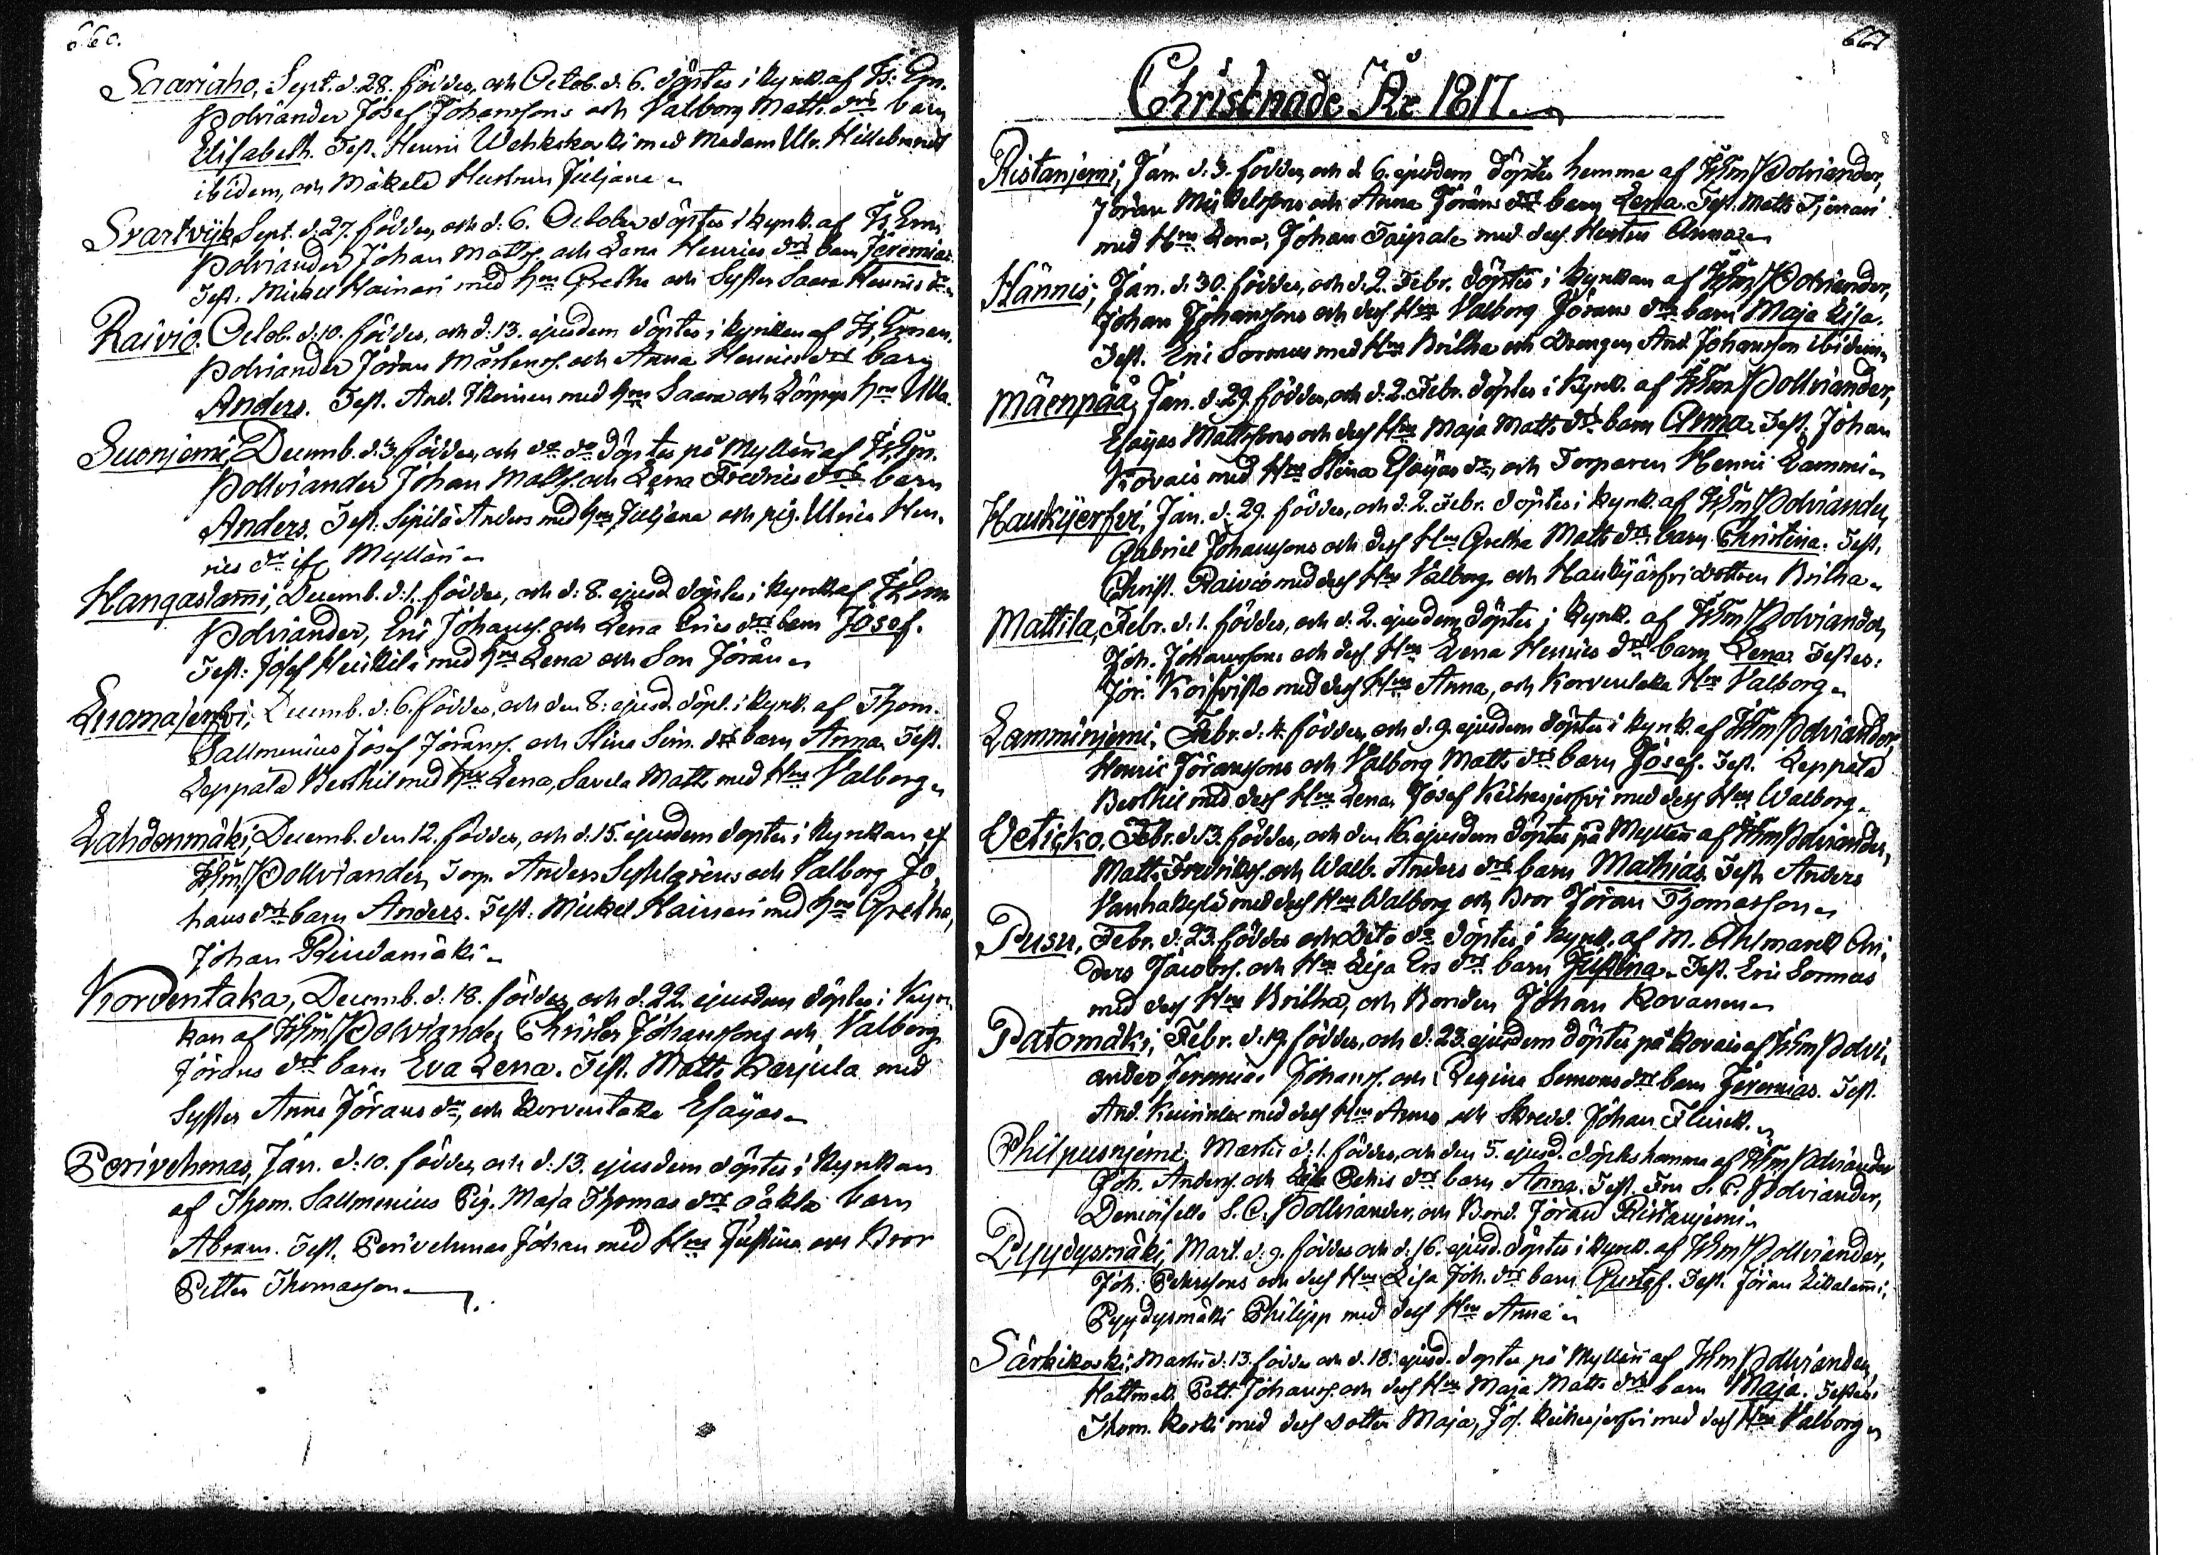 660.
Saariaho, Sept. d. 28. föddes, och Octob. d. 6. döptes i kyrk. af
Polviander Josef Johanssons och Valborg Matts drs barn
Elisabeth. Test. Henric med Madam Ulr. Hillebrandt
ibidem, och Mäkelä Hustrun Juliana
Svartvijk, Sept. d. 27. föddes, och d. 6. October döptes i kyrk. af
Polviander Johan Matts. och Lena Henrics drs barn Jeremias.
Test. Mickel Hainari med hru Gretha och Syster Saara Henrics dr
Raivio. Octob. d. 10. föddes, och d. 13. ejusdem döptes i kyrkan af
Polviander Jöran Mårtens. och Anna Henrics drs barn
Anders. Test. And. Ikoinen med hru Saara och hru Ulla.
Suonjemi, Decemb. d. 3. föddes, och do do döptes på Myllärn af
Pollviander Johan Matts. och Lena Fredrics drs barn
Anders. Test. Sipilä Anders med hru Juliana och pig. Ulrica Hen-
rics dr if. Myllärn
Hangaslami, Decemb. d. 1. föddes, och d. 8. ejusd. döptes i kyrk. af
Polviander, Eric Johans. och Lena Erics drs barn Josef.
Test: Josef Heickilä med hru Lena och Son Jöran
Luomajerfvi, Decemb. d. 6. föddes, och den 8. ejusd. döpt. i kyrk. af Thom.
Sallmenius Josef Jörans. och Stina Sim. drs barn Anna. Test.
Leppälä Berthil med hru Lena, Savela Matts med Hru Valborg
Lahdenmäki, Decemb. den 12. föddes, och d. 15. ejusdem döptes i kyrkan af
Pollviander, Torp. Anders och Valborg Jo-
hans drs barn Anders. Test: Mickel Hainari med hru Gretha,
Johan Rindamäki
Korventaka, Decemb. d. 18. föddes, och d. 22. ejusdem döptes i kyr-
kan af Polviander, Christer Johanssons och Valborg
Jörans drs barn Eva Lena. Test. Matts Karjula med
Syster Anna Jörans dr, och Korventaka Esaijas
Perivehmas, Jan. d. 10. föddes, och d. 13. ejusdem döptes i kyrkan
af Thom. Sallmenius Pig. Maja Thomas drs oäkta barn
Abram. Test. Perivehmas Johan med Hru Justina och Bror
Petter Thomasson
661
Christnade År 1817.
Ristanjemi, Jan. d. 3. föddes, och d. 6. ejusdem döptes hemma af Polviander,
Jöran Mickelssons och Anna Jörans drs barn Lena. Test. Matts
med Hru Lena, Johan Taipale med dess Hustru Anna
Hännis, Jan. d. 30. föddes, och d. 2. Febr. döptes i kyrkan af Polviander,
Johan Johanssons och dess Hru Valborg Jörans drs barn Maja Lisa.
Test. Eric Sormus med Hru Britha och Drengen And. Johansson ibidem
Mäenpää, Jan. d. 29. föddes, och d. 2. Febr. döptes i kyrk. af Pollviander,
Esaijas Mattssons och dess Hru Maja Matts drs barn Anna. Test. Johan
Kovais med Hru Stina Esaijas dr, och Torparen Henric Lammi
Haukijerfvi, Jan. d. 29. föddes, och d. 2. Febr. döptes i kyrk. af Polviander,
Gabriel Johanssons och dess Hru Gretha Matts drs barn Christina. Test.
Christ. Raivio med dess Hru Valborg och Haukijärfvi dottren Britha
Mattila, Febr. d. 1. föddes, och d. 2. ejusdem döptes i kyrk. af Polviander,
Joh. Johanssons och dess Hru Lena Henrics drs barn Lena. Testes:
Jör. Koifvisto med dess Hru Anna, och Korventaka Hru Valborg
Lamminjemi, Febr. d. 4. föddes, och d. 9. ejusdem döptes i kyrk. af Polviander,
Henric Jöranssons och Valborg Matts drs barn Josef. Test. Leppälä
Berthil med dess Hru Lena, Josef Keihesjerfvi med dess Hru Walborg
Veticko, Febr. d. 13. föddes, och den 16. ejusdem döptes på Myllärn af Polviander,
Matts Fredriks. och Walb. Anders drs barn Mathias. Test. Anders
Vanhakylä med dess Hru Walborg och Bror Jöran Thomasson
Pusu, Febr. d. 23. föddes och dito do döptes i kyrk. af M. Ahlmarck An-
ders Jacobs. och Hru Lisa Ers drs barn Justina. Test. Eric Sormus
med dess Hru Britha, och Bonden Johan Rovanen
Patomäki, Febr. d. 19. föddes, och d. 23. ejusdem döptes på Kovais af Polvi-
ander Jeremias Johans. och Regina Simons drs barn Jeremias. Test.
And. med dess Hru Anna och Skredd. Johan Flinck.
Philpusnjemi, Martii d. 1. föddes, och den 5. ejusd. döptes hemma af Polviander
Joh. Anders. och Lisa Petris drs barn Anna. Test. Fru S. C. Polviander,
Demoiselle S. C. Pollviander, och Bond. Jöran Ristanjemi
Pyydysmäki, Mart. d. 9. föddes och d. 16. ejusd. döptes i kyrk. af Pollviander,
Joh. Petterssons och dess Hru Lisa Joh. drs barn Gustaf. Test. Jöran
Pyydysmäki Philipp med dess Hru Anna
Särkikoski, Martii d. 13. föddes och d. 18. ejusd. döptes på Myllärn af Pollviander,
Hattmak. Pett. Johans. och dess Hru Maja Matts drs barn Maja. Testes:
Thom. Koski med dess dotter Maja, Jos. Keihesjerfvi med dess Hru Valborg